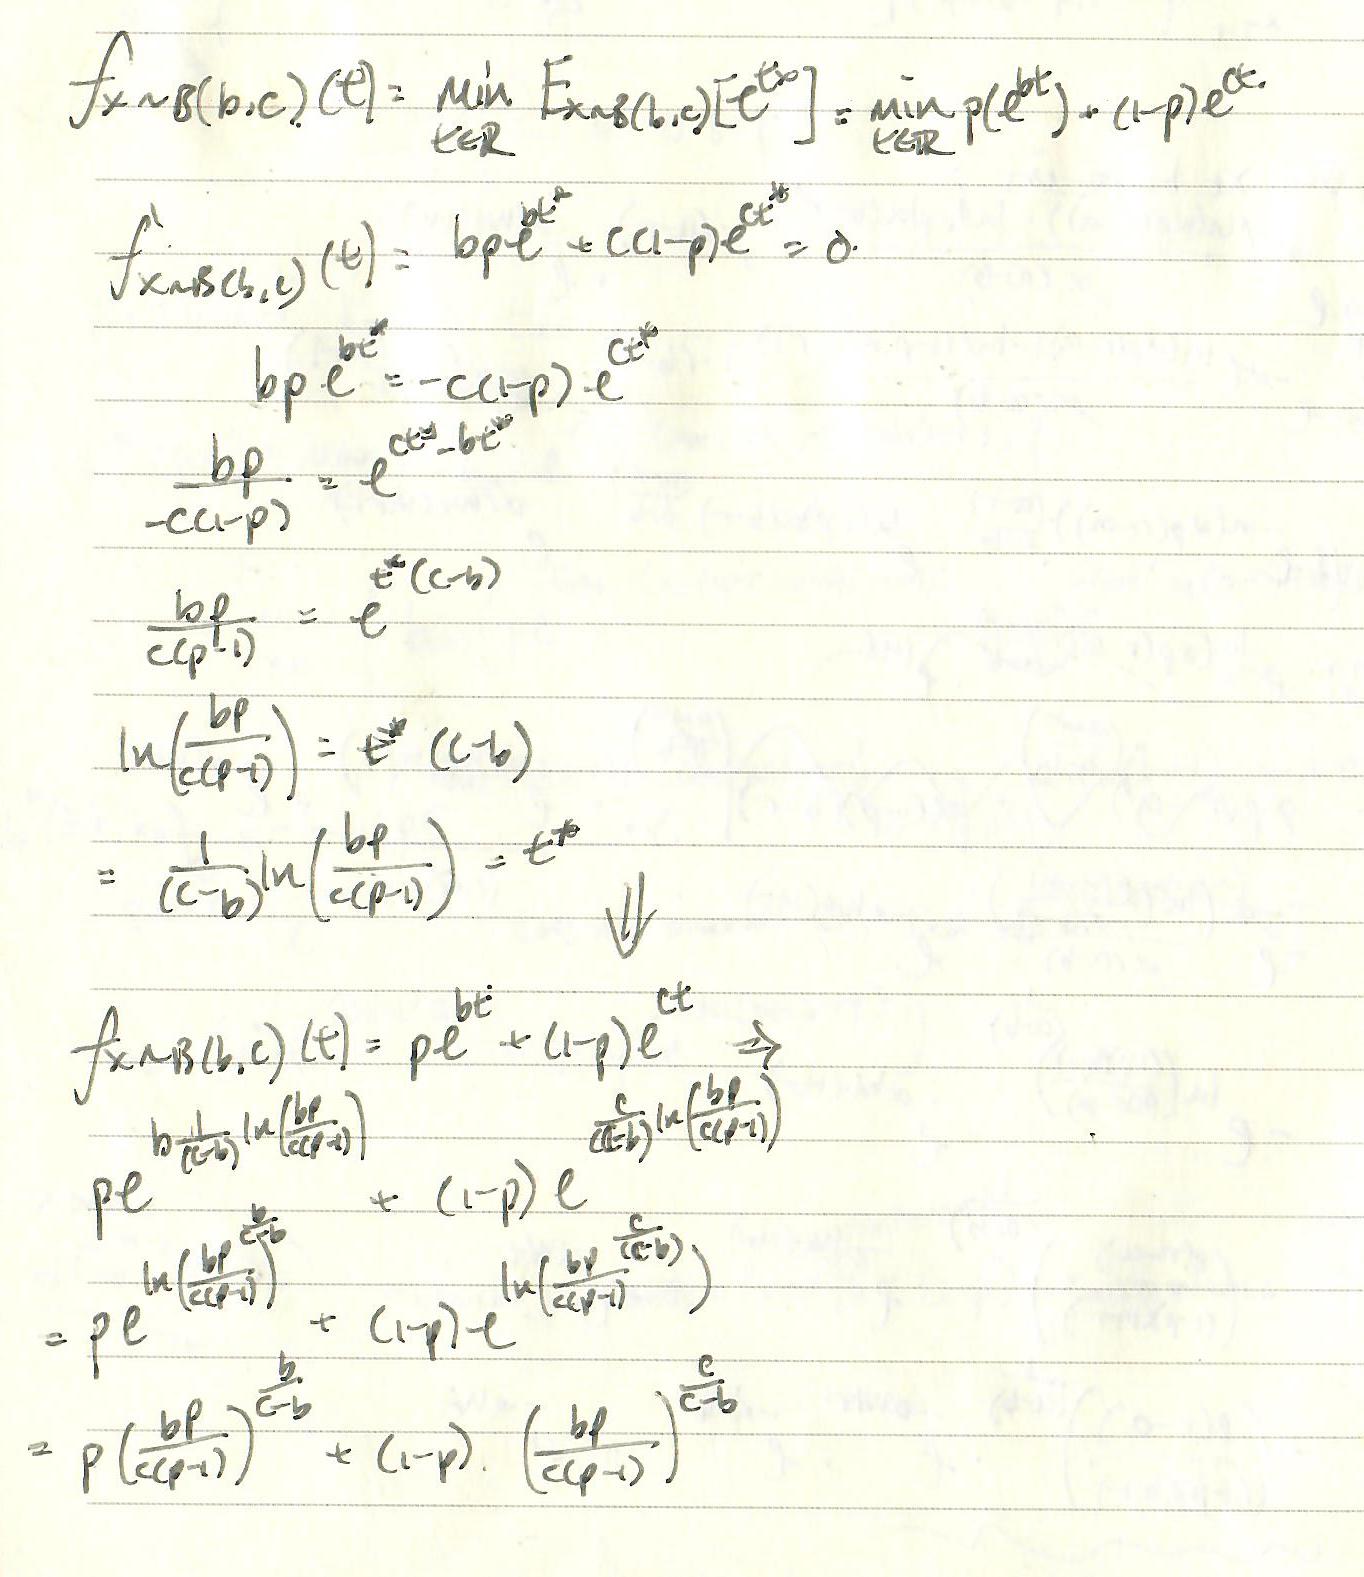 f_{x~B(b,c)}(t) = min_{t∈ℝ} E_{x~B(b,c)}[e^{tx}] = min_{t∈ℝ} p(e^{bt}) + (1-p)e^{ct}
f'_{x~B(b,c)}(t) = bpe^{bt*} + c(1-p)e^{ct*} = 0.
bp e^{bt*} = -c(1-p) · e^{ct*}
bp/(-c(1-p)) = e^{ct*-bt*}
bp/(c(p-1)) = e^{t*(c-b)}
ln(bp/(c(p-1))) = t* (c-b)
= 1/(c-b) ln(bp/(c(p-1))) = t*
⇓
f_{x~B(b,c)}(t) = pe^{bt} + (1-p)e^{ct} ⇒
pe^{b 1/(c-b) ln(bp/(c(p-1)))} + (1-p) e^{c/(c-b) ln(bp/(c(p-1)))}
= pe^{ln(bp/(c(p-1)))^{b/(c-b)}} + (1-p) · e^{ln(bp/(c(p-1))^{c/(c-b)})}
= p(bp/(c(p-1)))^{b/(c-b)} + (1-p) · (bp/(c(p-1)))^{c/(c-b)}